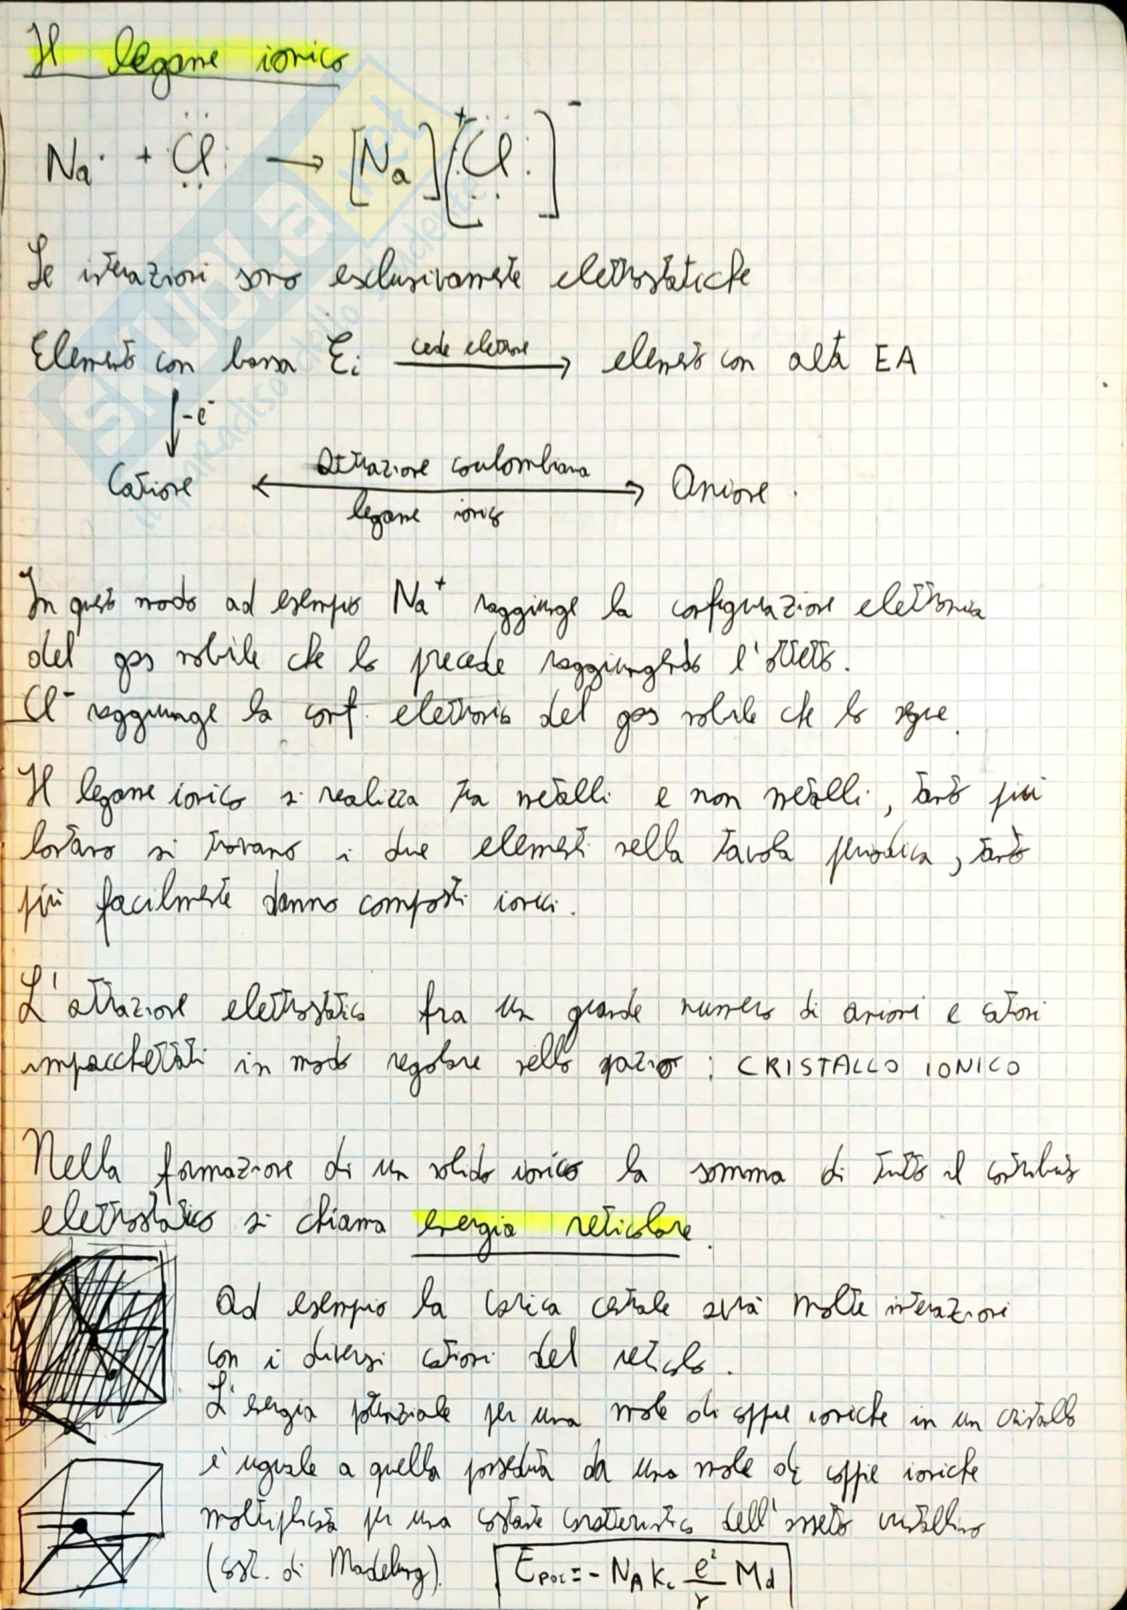 Il legame ionico
Na· + Cl → [Na]⁺[Cl]⁻
Le interazioni sono esclusivamente elettrostatiche
Elemento con bassa Ei cede elettrone → elemento con alta EA
↓ -e⁻
Catione ← Attrazione coulombiana → Anione.
legame ionico
In questo modo ad esempio Na⁺ raggiunge la configurazione elettronica
del gas nobile che lo precede raggiungendo l'ottetto.
Cl⁻ raggiunge la conf. elettronica del gas nobile che lo segue.
Il legame ionico si realizza tra metalli e non metalli, tanto più
lontano si trovano i due elementi nella tavola periodica, tanto
più facilmente danno composti ionici.
L'attrazione elettrostatica fra un grande numero di anioni e cationi
impacchettati in modo regolare nello spazio: CRISTALLO IONICO
Nella formazione di un solido ionico la somma di tutto il contributo
elettrostatico si chiama energia reticolare.
Ad esempio la carica centrale avrà molte interazioni
con i diversi cationi del reticolo.
L'energia potenziale per una mole di coppie ioniche in un cristallo
è uguale a quella posseduta da una mole di coppie ioniche
moltiplicata per una costante caratteristica dell'assetto cristallino
(cost. di Madelung). Epot = - NA kc e²/r Md
SKUOLA.net
il paradiso dello studente